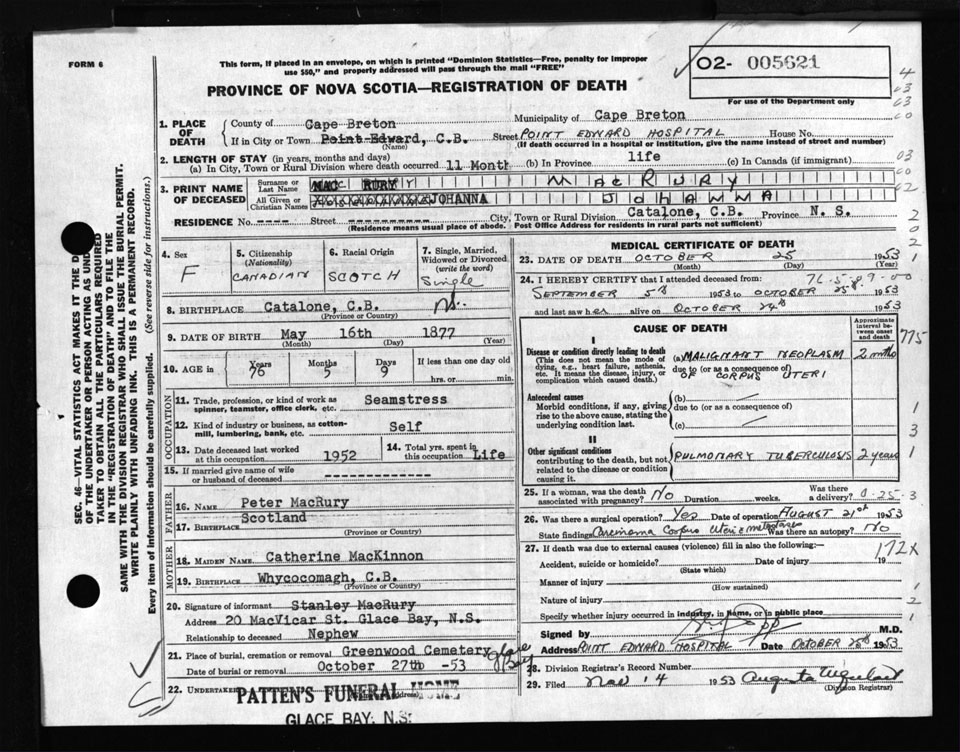 FORM 6
This form, if placed in an envelope, on which is printed "Dominion Statistics—Free, penalty for improper
use $50," and properly addressed will pass through the mail "FREE"
O2- 005621
For use of the Department only
PROVINCE OF NOVA SCOTIA—REGISTRATION OF DEATH
1. PLACE OF DEATH
County of Cape Breton Municipality of Cape Breton
If in City or Town Point Edward, C.B. Street POINT EDWARD HOSPITAL House No.
(Name) (If death occurred in a hospital or institution, give the name instead of street and number)
2. LENGTH OF STAY (in years, months and days)
(a) In City, Town or Rural Division where death occurred 11 Month (b) In Province life (c) In Canada (if immigrant)
3. PRINT NAME OF DECEASED
Surname or Last Name MAC RURY MACRURY
All Given or Christian Names JOHANNA JOHANNA
RESIDENCE No. ---- Street City, Town or Rural Division Catalone, C.B. Province N. S.
(Residence means usual place of abode. Post Office Address for residents in rural parts not sufficient)
4. Sex F
5. Citizenship (Nationality) CANADIAN
6. Racial Origin SCOTCH
7. Single, Married, Widowed or Divorced (write the word) Single
8. BIRTHPLACE Catalone, C.B. N.S.
(Province or Country)
9. DATE OF BIRTH May 16th 1877
(Month) (Day) (Year)
10. AGE in Years 76 Months 5 Days 9 If less than one day old
hrs. or min.
OCCUPATION
11. Trade, profession, or kind of work as spinner, teamster, office clerk, etc. Seamstress
12. Kind of industry or business, as cotton-mill, lumbering, bank, etc. Self
13. Date deceased last worked at this occupation 1952
14. Total yrs. spent in this occupation Life
15. If married give name of wife or husband of deceased
FATHER
16. Name Peter MacRury
17. Birthplace Scotland
(Province or Country)
MOTHER
18. MAIDEN NAME Catherine MacKinnon
19. BIRTHPLACE Whycocomagh, C.B.
(Province or Country)
20. Signature of informant Stanley MacRury
Address 20 MacVicar St. Glace Bay, N.S.
Relationship to deceased Nephew
21. Place of burial, cremation or removal Greenwood Cemetery Glace Bay
Date of burial or removal October 27th -53
22. UNDERTAKER PATTEN'S FUNERAL HOME
GLACE BAY, N.S.
MEDICAL CERTIFICATE OF DEATH
23. DATE OF DEATH OCTOBER 25 1953
(Month) (Day) (Year)
24. I HEREBY CERTIFY that I attended deceased from:
SEPTEMBER 5th 1953 to OCTOBER 25th 1953
and last saw her alive on OCTOBER 24th 1953
CAUSE OF DEATH
Approximate interval between onset and death
I
Disease or condition directly leading to death (a) MALIGNANT NEOPLASM 2 mths
(This does not mean the mode of dying, e.g., heart failure, asthenia, etc. It means the disease, injury, or complication which caused death.)
due to (or as a consequence of)
OF CORPUS UTERI
Antecedent causes
Morbid conditions, if any, giving rise to the above cause, stating the underlying condition last.
(b)
due to (or as a consequence of)
(c)
II
Other significant conditions
contributing to the death, but not related to the disease or condition causing it.
PULMONARY TUBERCULOSIS 2 years
25. If a woman, was the death associated with pregnancy? NO Duration weeks. Was there a delivery?
26. Was there a surgical operation? Yes Date of operation AUGUST 21st 1953
State findings Carcinoma Corpus Uteri c metastases Was there an autopsy? No
27. If death was due to external causes (violence) fill in also the following:—
172X
Accident, suicide or homicide? Date of injury 19
(State which)
Manner of injury
(How sustained)
Nature of injury
Specify whether injury occurred in industry, in home, or in public place
Signed by M.D.
Address POINT EDWARD HOSPITAL Date OCTOBER 25th 1953
28. Division Registrar's Record Number
29. Filed Nov 14 1953
(Division Registrar)
775
SEC. 46—VITAL STATISTICS ACT MAKES IT THE D
OF THE UNDERTAKER OR PERSON ACTING AS UND
TAKER TO OBTAIN ALL THE PARTICULARS REQUIRED
IN THE "REGISTRATION OF DEATH" AND TO FILE THE
SAME WITH THE DIVISION REGISTRAR WHO SHALL ISSUE THE BURIAL PERMIT.
WRITE PLAINLY WITH UNFADING INK. THIS IS A PERMANENT RECORD.
Every item of information should be carefully supplied. (See reverse side for instructions.)